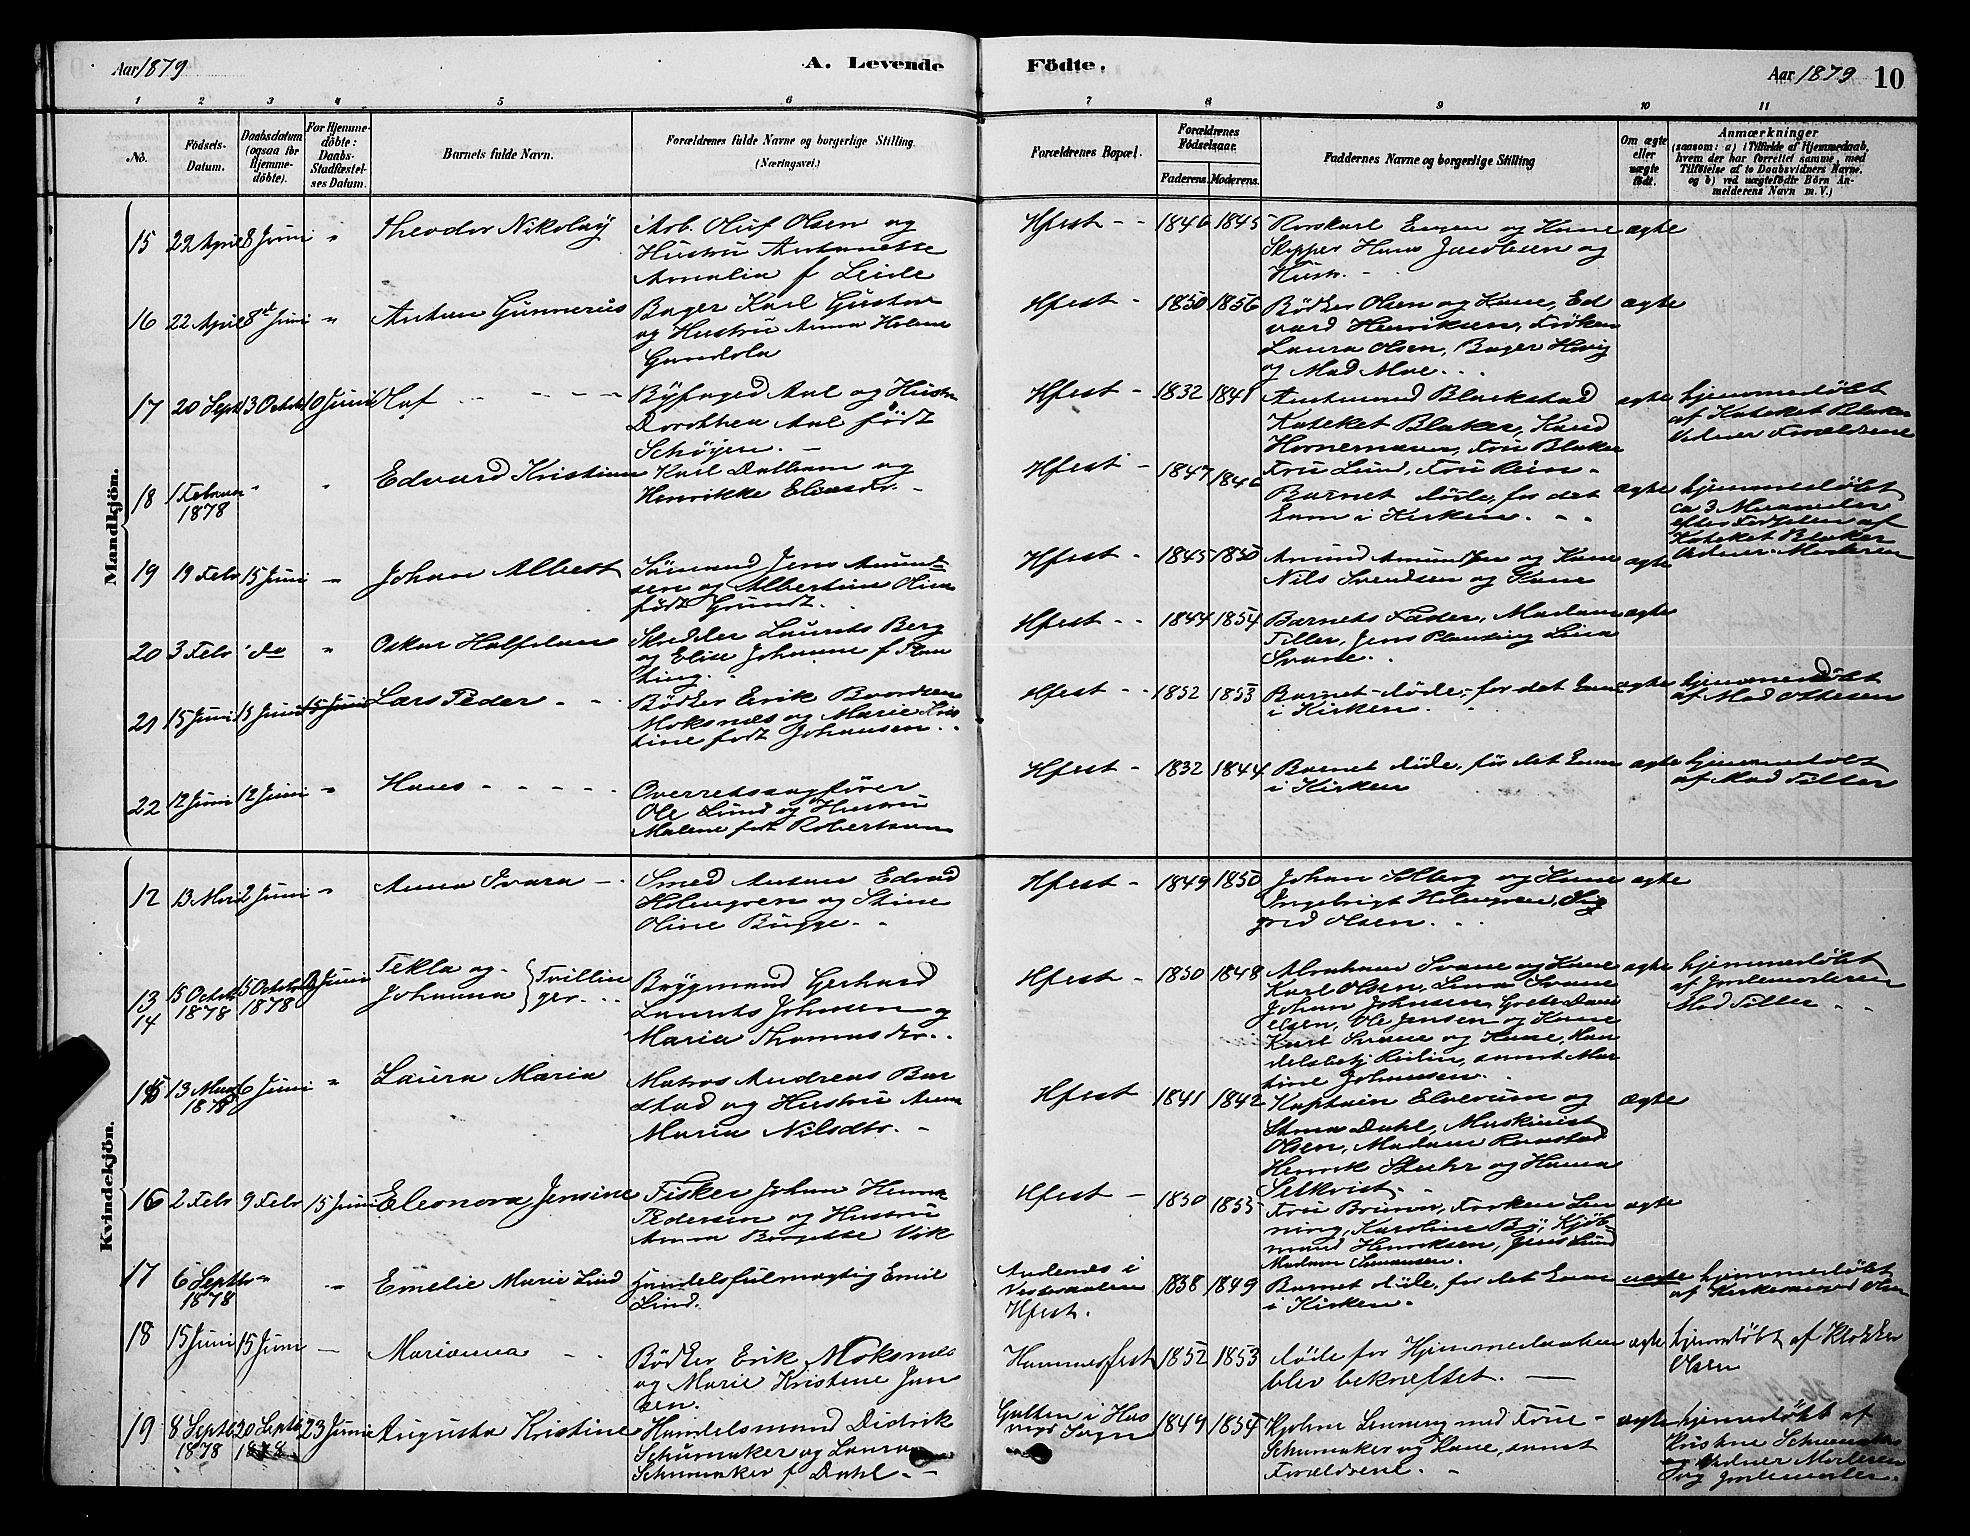 Aar 1879
A. Levende
Födte.
Aar 1879
10
1 2 3 4 5 6 7 8 9 10 11
No.
Födsels-Datum.
Daabsdatum (ogsaa for Hjemme-döbte).
For Hjemme-döbte: Daabs-Stadfæstel-ses Datum.
Barnets fulde Navn.
Forældrenes fulde Navne og borgerlige Stilling. (Næringsvei.)
Forældrenes Bopæl.
Forældrenes Födselsaar.
Faderens. Moderens.
Faddernes Navne og borgerlige Stilling
Om ægte eller uægte födt.
Anmærkninger
(saasom: a) i Tilfælde af Hjemmedaab,
hvem der har forrettet samme, med
Tilföielse af to Daabsvidners Navne.
og b) ved uægtefödte Börn An-
melderens Navn m. V.)
Mandkjön.
15 22 April 8 Juni " Theodor Nikolay
Arb. Oluf Olsen og
Hustru Antonette
Amalia f Leide
Hfest - - 1846 1845
Skipper Hans Jacobsen og
Hustr. -
ægte
16 22 April 8de Juni " Anton Gunnerus
Bager Karl Gustav
og Hustru Anna Helene
Gundola
Hfest - 1850 1856
Bödker Olsen og Kone, Ed
vard Henriksen, Fröken
Laura Olsen, Bager
og Mad Moe. . .
ægte
17 20 Sept 3 Octob 10 Juni Olaf - - - -
Byfoged Aal og Hustru
Dorothea Aal född
Schöyen. -
Hfest - 1832 1841
Blackstad
Kateket Blaker, Kand
Hornemann, Fru Blaker
Fru Lund, Fru Rein -
ægte
hjemmedöbt
af Kateket Blaker
Vidner Forældrene
18 1 Februar 1878 " " Edvard Kristian
Karl Dalham og
Henrikke Eliasdr. -
Hfest - 1847 1846
Barnet döde, for det
kom i Kirken. - -
ægte
hjemmedöbt
ca 3 Maaneder
efter Födselen af
Kateket Blaker
Vidner. Moderen
19 19 Febr 15 Juni " Johan Albert
Sömand Jens Amund-
sen og Albertine Olina
födt Grundt.
Hfest - 1845 1850
Amund Amundsen og Kone
Nils Svendsen og Kone
ægte
20 3 Febr do " Oskar Halfdan
Laurits Berg
og Elise Johanne f Plan
ting.
Hfest - - 1844 1854
Barnets Fader, Madam
Tiller, Jens Planting Lina
Svane. .
ægte
21 15 Juni 15 Juni 15 Juni Lars Peder - -
Bödker Erik Baardsen
Moksnæs og Marie Kris
tine födt Johansen. .
Hfest - - 1852 1853
Barnet döde, for det kom
i Kirken.
ægte
hjemmedöbt
af Mad Ottesen
22 12 Juni 12 Juni " Hans - - - - -
Overretssagförer
Ole Lund og Hustru
Malene födt Robertson
Hfest - 1832 1844
Barnet döde, för det kom
i Kirken
ægte
hjemmedöbt
af Mad Tiller
Kvindekjön.
12 13 Mai 2 Juni " Anna Ivara -
Smed Anton Edvard
Holmgren og Stine
Oline Bugge. -
Hfest - 1849 1850
Johan Solberg og Kone
Ingebrigt Holmgren, Sig
grid Olsen. .
ægte
13 14 5 Octob 1878 5 Octob 1878 2 Juni
Tekla og Johanna } Tvillinger. . .
Brygmand Gerhard
Laurits Johnsen og
Maria Thomasdr. .
Hfest - 1850 1848
Abraham Svane og Kone
Karl Olsen, Lina Svane
Johan Johnsen, Grete Dani
elsen, Ole Jensen og Kone
Karl Svane og Kone, Han
delsbetj Reilin, samt Mar
tine Johansen.
ægte
hjemmedöbt
af Jordemoderen
Mad Tiller - -
15 13 Mai 1878 6 Juni " Laura Maria
Matros Andreas Bar
stad og Hustru Anna
Maria Nilsdtr. -
Hfest 1841 1842
Kaptain Elverum og
Dahl, Maskinist
Olsen, Madam
Henrik Stuhr og Hanna
Selkvist. -
ægte
16 2 Febr 9 Febr 15 Juni Eleonora Jensine
Fisker Johan
Pedersen og Hustru
Anna Birgitte Vik
Hfest - 1850 1853
Fru Bruun, Fröken Len
ning, Karoline By, Kjöb-
mand Henriksen, Jens Lund
Madam Simonsen.
ægte
17 6 Septb 1878 " " Emelie Marie Lind
Handelsfulmægtig Emil
Lind.
Andenes i
Vesteraalen
Hfest. 1838 1849
Barnet döde, for det kom
i Kirken.
uægte
hjemmedöbt
af Olsen
18 15 Juni 15 Juni - Marianna - -
Bödker Erik Moksnæs
og Marie Kristine Jan
sen.
Hammerfest 1852 1853
döde for Hjemmedaaben
blev bekræftet. -
ægte
hjemdöbt af Klokker
Olsen
19 8 Septb 1878 20 Septb 1878 23 Juni Augusta Kristine
Handelsmand Didrik
Schumaker og Laura
Schumaker f Dahl. -
Galten i Has
vigs Sogn 1849 1854
Lenning med Frue -
Schumaker og Kone, samt
Forældrene. -
ægte
hjemmedöbt af
Kristine Schumaker
Vidner Moderen
og Jordemoder.